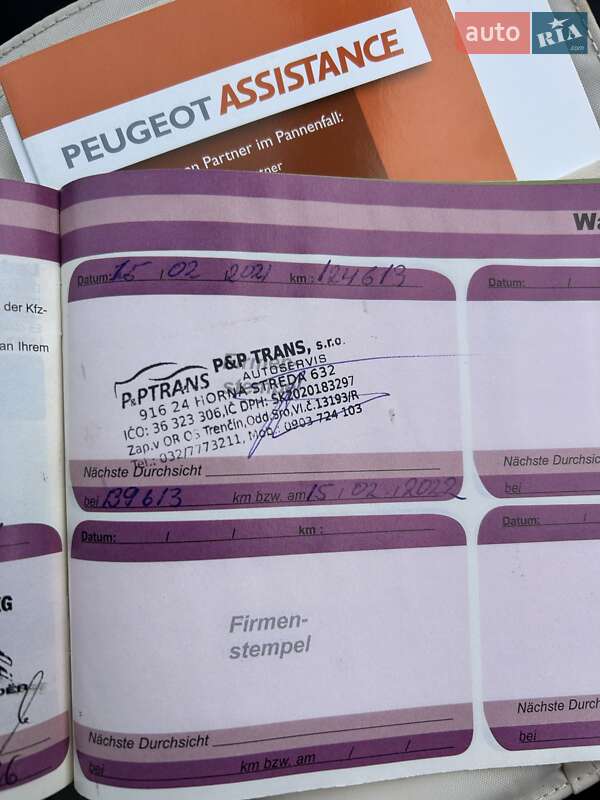 auto RIA.com
PEUGEOT ASSISTANCE
en Partner im Pannenfall:
Wa
der Kfz-
an Ihrem
Datum: 15 , 02 , 2021 km : 124613
Datum: /
Firmen-
stempel
P&PTRANS
P&P TRANS, s.r.o.
AUTOSERVIS
916 24 HORNÁ STREDA 632
IČO: 36 323 306, IČ DPH: SK2020183297
Zap.v OR OS Trenčín, Odd.Sro, Vl.č.13193/R
Tel.: 032/7773211, Mob.: 0903 724 103
Nächste Durchsicht
bei 139613 km bzw. am 15 , 02 , 2022
Nächste Durchsic
bei
Datum: / / km :
Datum: /
Firmen-
stempel
Nächste Durchsicht
bei km bzw. am / /
Nächste Durchsic
bei